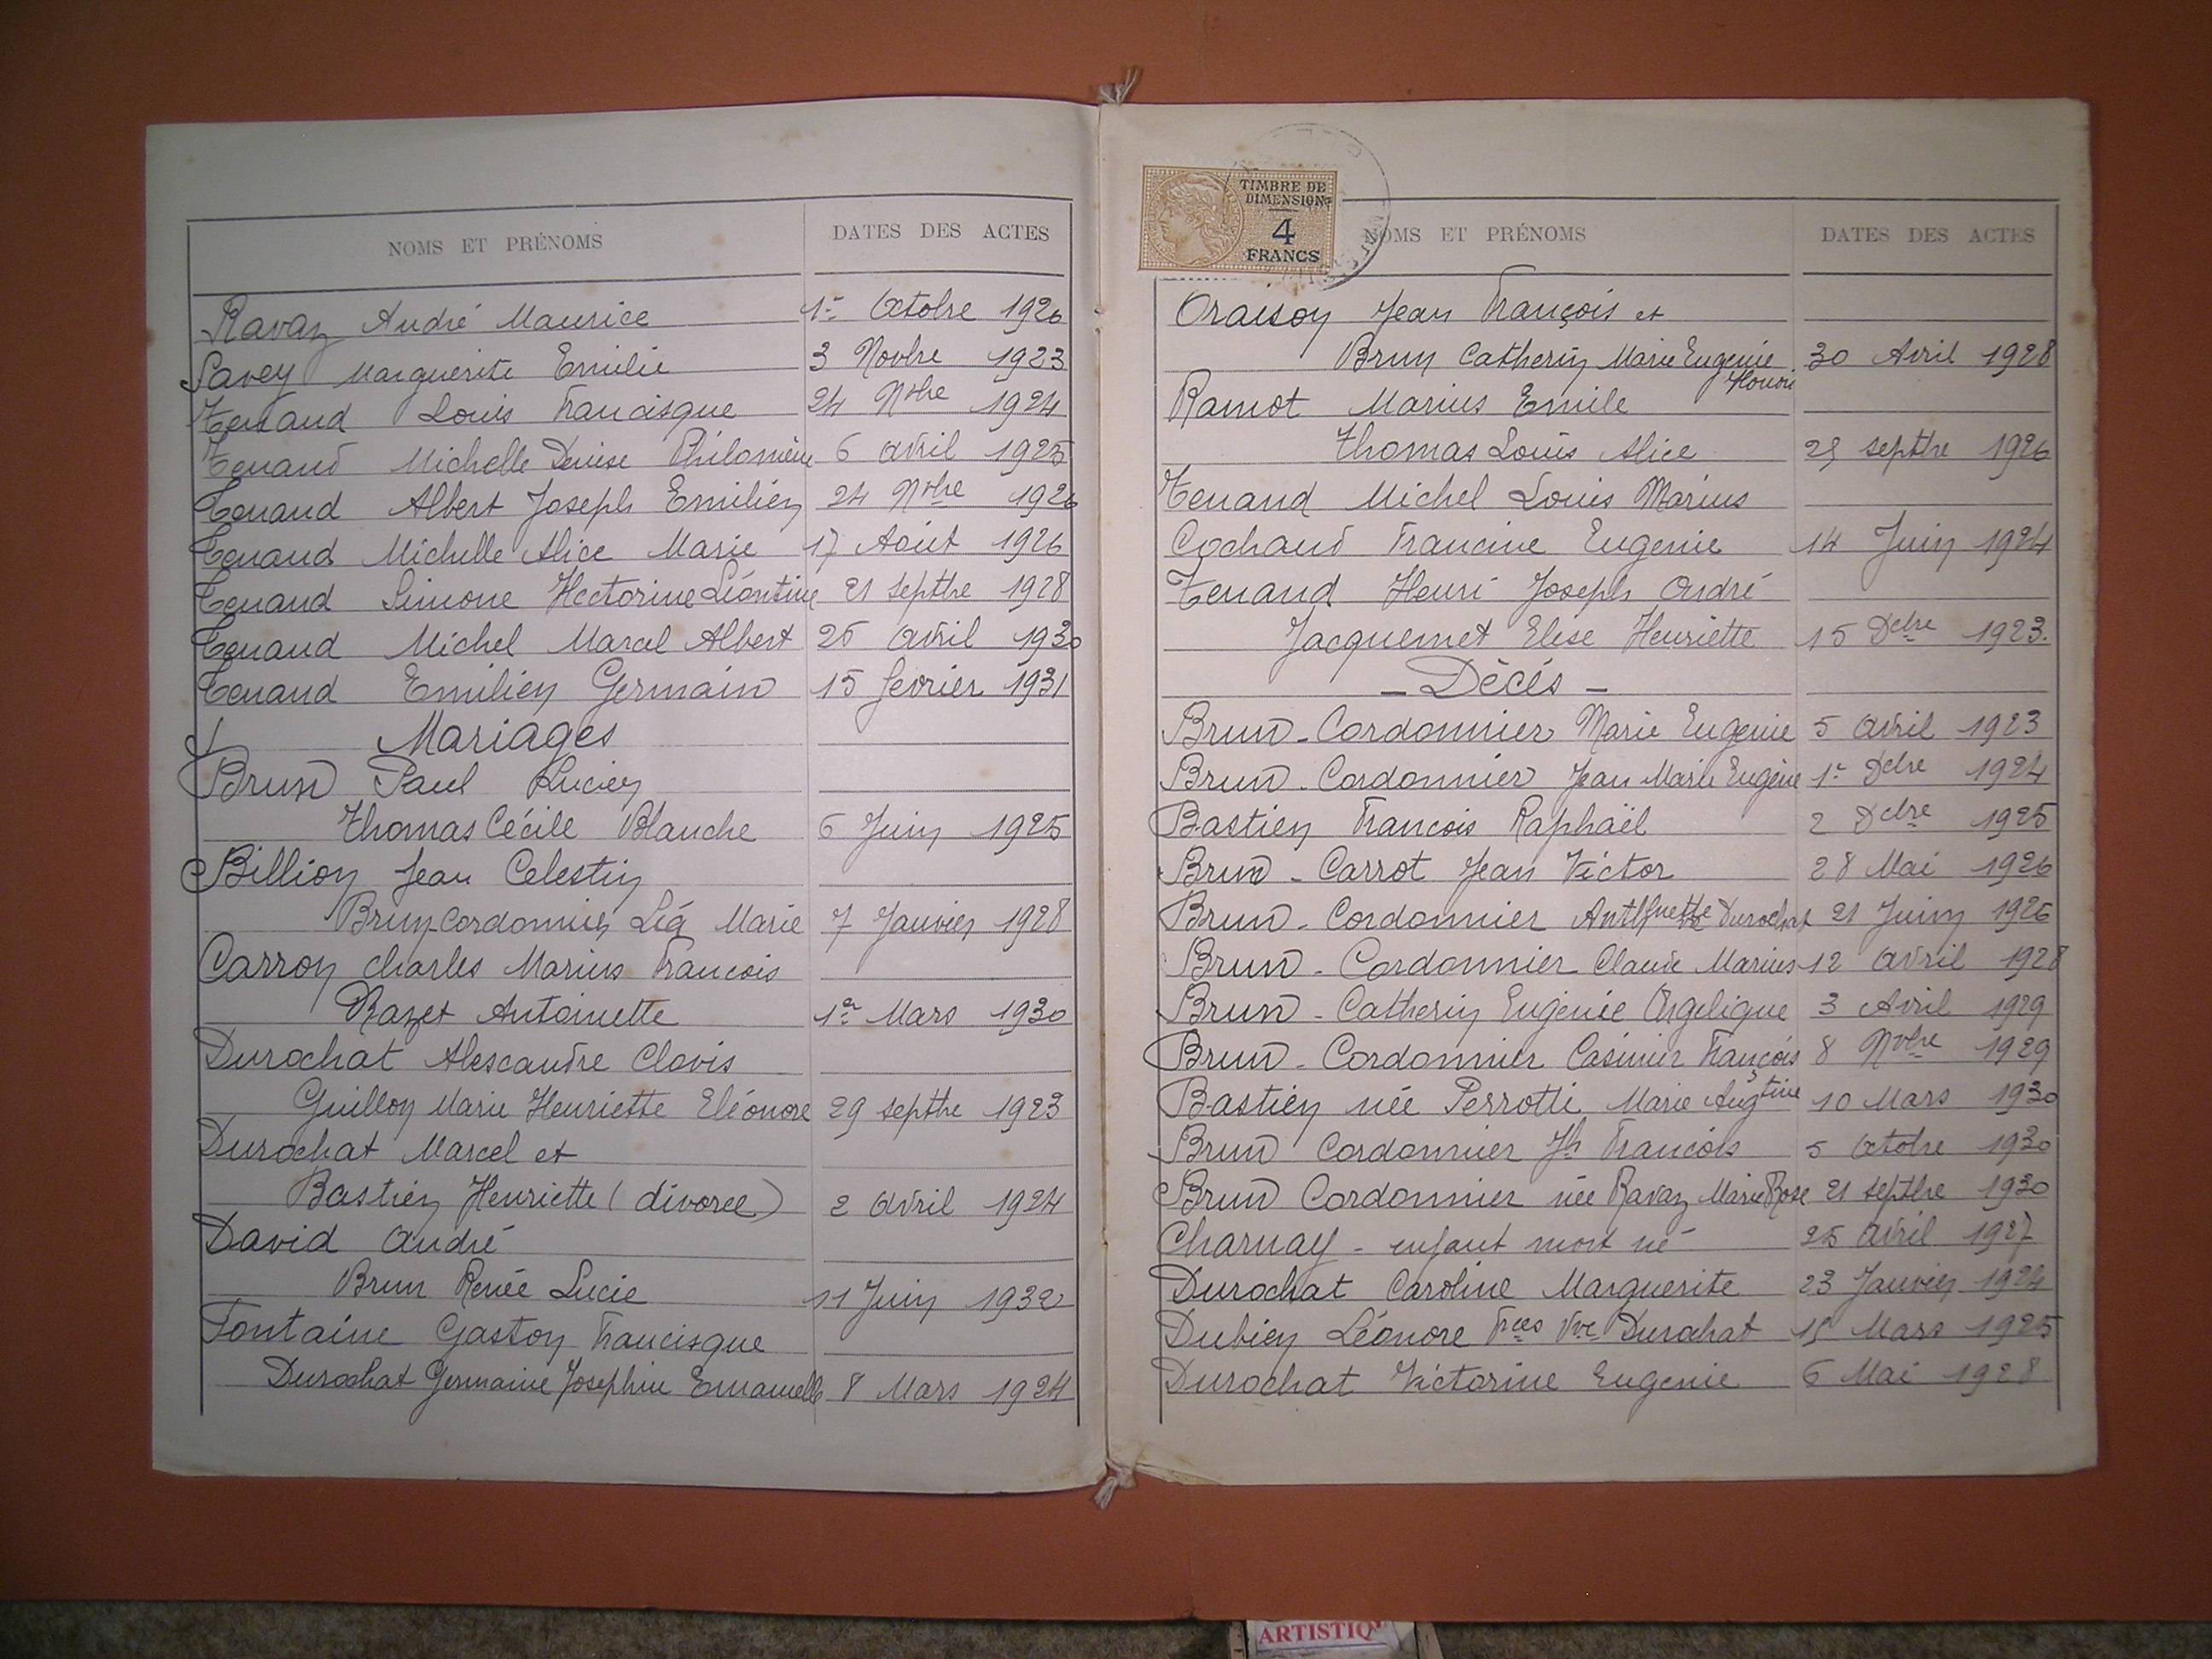 NOMS ET PRÉNOMS DATES DES ACTES
Ravaz André Maurice 1er Octobre 1926
Savey Marguerite Emilie 3 Novbre 1923
Tenand Louis Francisque 24 Nbre 1924
Tenand Michelle Denise Philomène 6 avril 1925
Tenand Albert Joseph Emilien 24 Nbre 1926
Tenand Michelle Alice Marie 17 Août 1926
Tenand Simone Hectorine Léontine 21 Septbre 1928
Tenand Michel Marcel Albert 25 avril 1930
Tenand Emilien Germain 15 fevrier 1931
Mariages
Brun Paul Lucien
Thomas Cécile Blanche 6 Juin 1925
Billion Jean Celestin
Brun Cordonnier Léa Marie 7 Janvier 1928
Carron Charles Marius Francois
Razet Antoinette 1er Mars 1930
Durochat Alexandre Clovis
Guillon Marie Henriette Eléonore 29 septbre 1923
Durochat Marcel et
Bastien Henriette (divorcé) 2 avril 1924
David André
Brun Renée Lucie 11 Juin 1932
Fontaine Gaston Francisque
Durochat Germaine Josephine Emanuelle 8 Mars 1924
TIMBRE DE
DIMENSION
4
FRANCS
NOMS ET PRÉNOMS DATES DES ACTES
Oraison Jean François et
Brun Catherin Marie Eugenie 30 Avril 1928
Ramot Marius Emile Honoré
Thomas Louis Alice 29 septbre 1926
Tenand Michel Louis Marius
Cochand Francine Eugenie 14 Juin 1924
Tenand Henri Joseph André
Jacquemet Elise Henriette 15 Dcbre 1923.
- Décés -
Brun - Cordonnier Marie Eugenie 5 avril 1923
Brun - Cordonnier Jean Marie Eugène 1er Dcbre 1924
Bastien Francois Raphaël 2 Dcbre 1925
Brun - Carrot Jean Victor 28 Mai 1926
Brun - Cordonnier Durochat 21 Juin 1926
Brun - Cordonnier Claude Marius 12 avril 1928
Brun - Catherin Eugénie Angelique 3 Avril 1929
Brun - Cordonnier Casimir François 8 Nvbre 1929
Bastien née Perrotti Marie Augtine 10 Mars 1930
Brun Cordonnier Jh Francois 5 Octobre 1930
Brun Cordonnier née Ravaz Marie Rose 21 septbre 1930
Charnay - enfant mort né 25 avril 1927
Durochat Caroline Marguerite 23 Janvier 1924
Dubien Léonore Fces Vve Durochat 15 Mars 1925
Durochat Victorine Eugenie 6 Mai 1928
ARTISTIQ